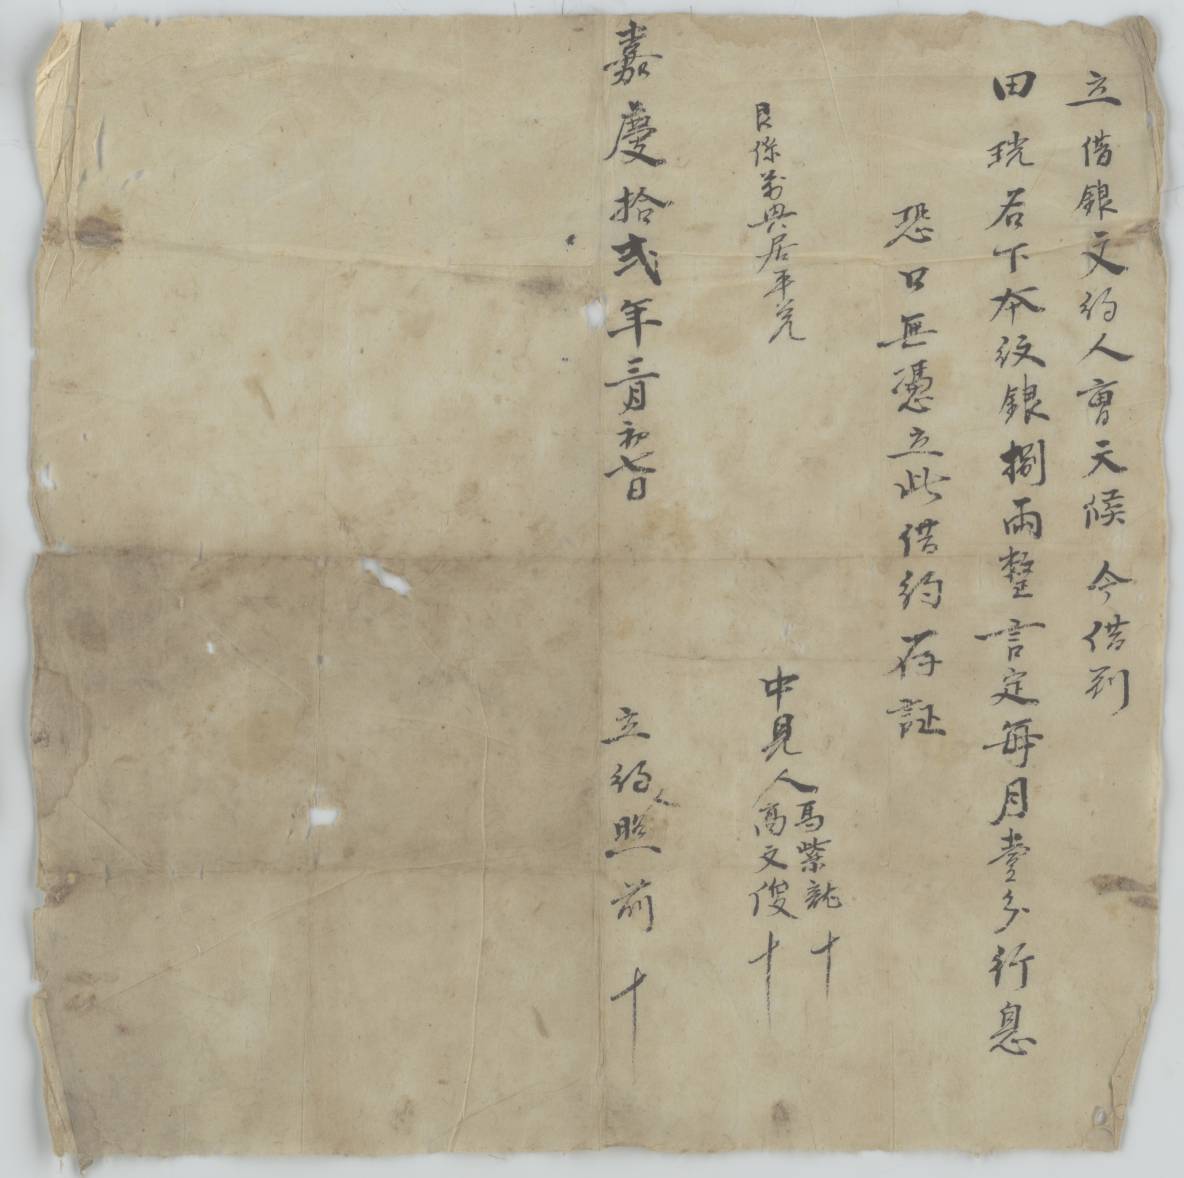 立借銀文約人曹天候今借到
田珖名下本紋銀捌兩整言定每月壹分行息
恐口無憑立此借約存証
艮係萬興居平兑
中見人
馮紫龍 十
高文俊 十
嘉慶拾弍年三月初七日
立約人照前 十